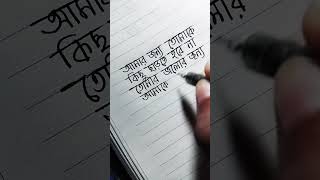 আমার জন্য তোমাকে
কিছু ছাড়তে হবে না
তোমার ভালোর জন্য
আমাকে